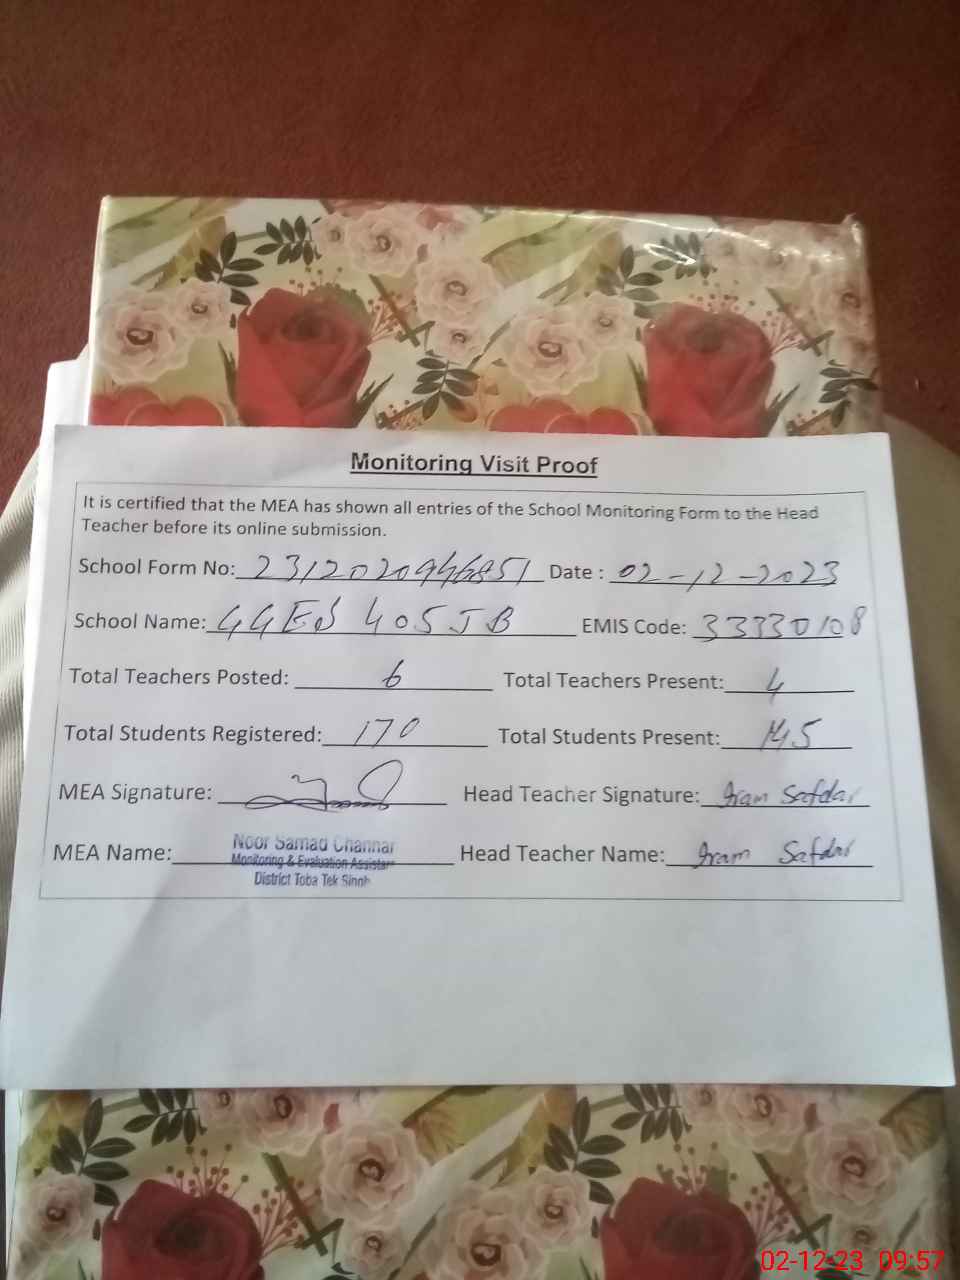 Monitoring Visit Proof
It is certified that the MEA has shown all entries of the School Monitoring Form to the Head
Teacher before its online submission.
School Form No: 2312020946851 Date : 02-12-2023
School Name: GGES 405 JB EMIS Code: 33330108
Total Teachers Posted: 6 Total Teachers Present: 4
Total Students Registered: 170 Total Students Present: 145
MEA Signature: Head Teacher Signature: Iram Safdar
MEA Name: Noor Samad Channar Head Teacher Name: Iram Safdar
Monitoring & Evaluation Assistant
District Toba Tek Singh
02-12-23 09:57